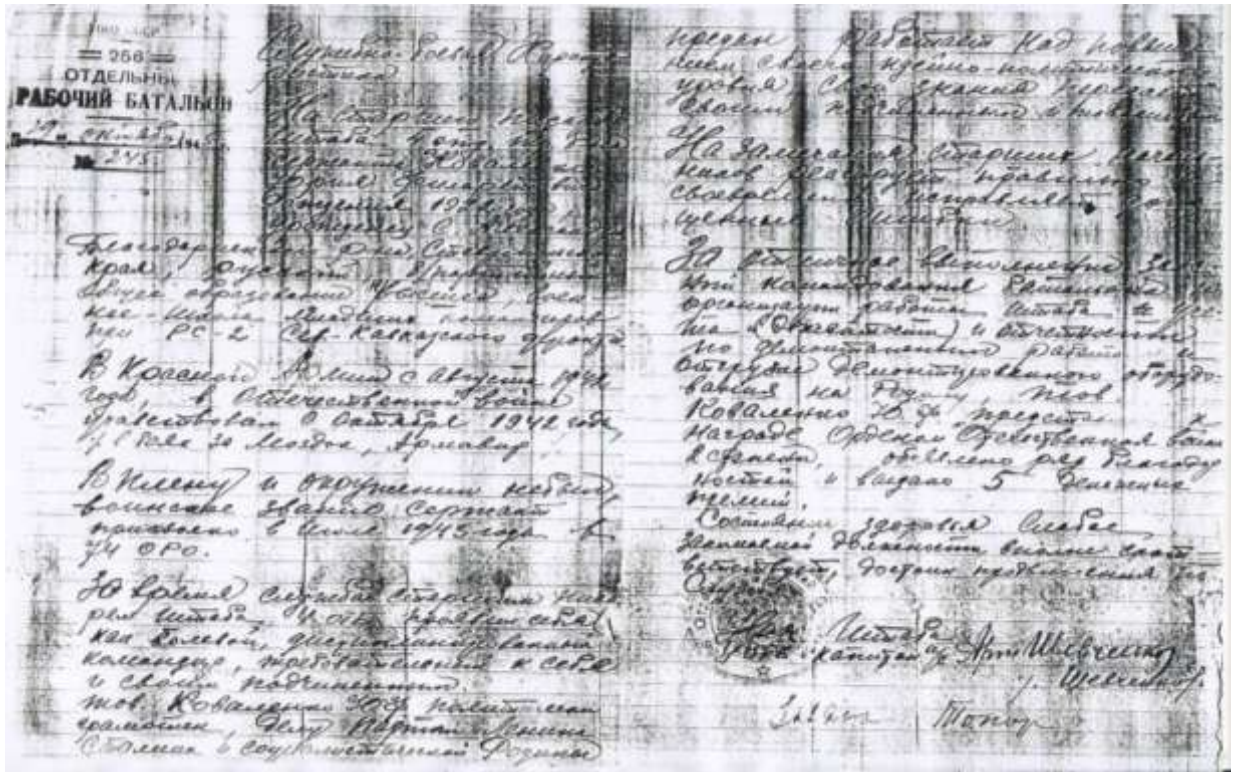 НКО СССР
= 256 =
ОТДЕЛЬНЫЙ
РАБОЧИЙ БАТАЛЬОН
19 октября
№ 245
Служебно-боевая Характе-
ристика
На Старшего писаря
Штаба
сержанта Коваленко
рождения 19
уроженец с.
Благодарненского р-на Ставропольского
края, русский
общее образование 9 классов, воен-
ное - Школа младших командиров
при РС-2 Сев.-Кавказского фронта
В Красной Армии с августа 1942
года, в отечественной войне
участвовал с октября 1942 года,
в боях за Моздок, Армавир
В плену и окружении не был,
воинское звание сержант
присвоено в июле 1945 года в
74 ОРО.
За время службы старшим писа-
рем штаба проявил себя
как волевой, дисциплинированный
командир, требовательный к себе
и своим подчиненным.
тов. Коваленко Ю.Ф. политически
грамотен, делу Партии Ленина
Сталина и социалистической Родины
предан. Работает над повыше-
нием своего идейно-политического
уровня. Свои знания передает
своим подчиненным и товарищам
На замечания старших началь-
ников реагирует правильно
своевременно исправляет допу-
щенные ошибки.
За отличное выполнение зада-
ний командования батальона по
организации работы штаба
и отчетности
по демонтажным работам и
отгрузке демонтированного оборудо-
вания на Родину, тов.
Коваленко Ю.Ф. представлен к
Награде Орденом Отечественной войны
II степени, объявлено ряд благодар-
ностей и выдано 5 денежных
премий.
Состояние здоровья слабое
Занимаемой должности вполне соот-
ветствует, достоин продвижения по
Нач. Штаба
капитан а/с Шевченко
/Шевченко/.